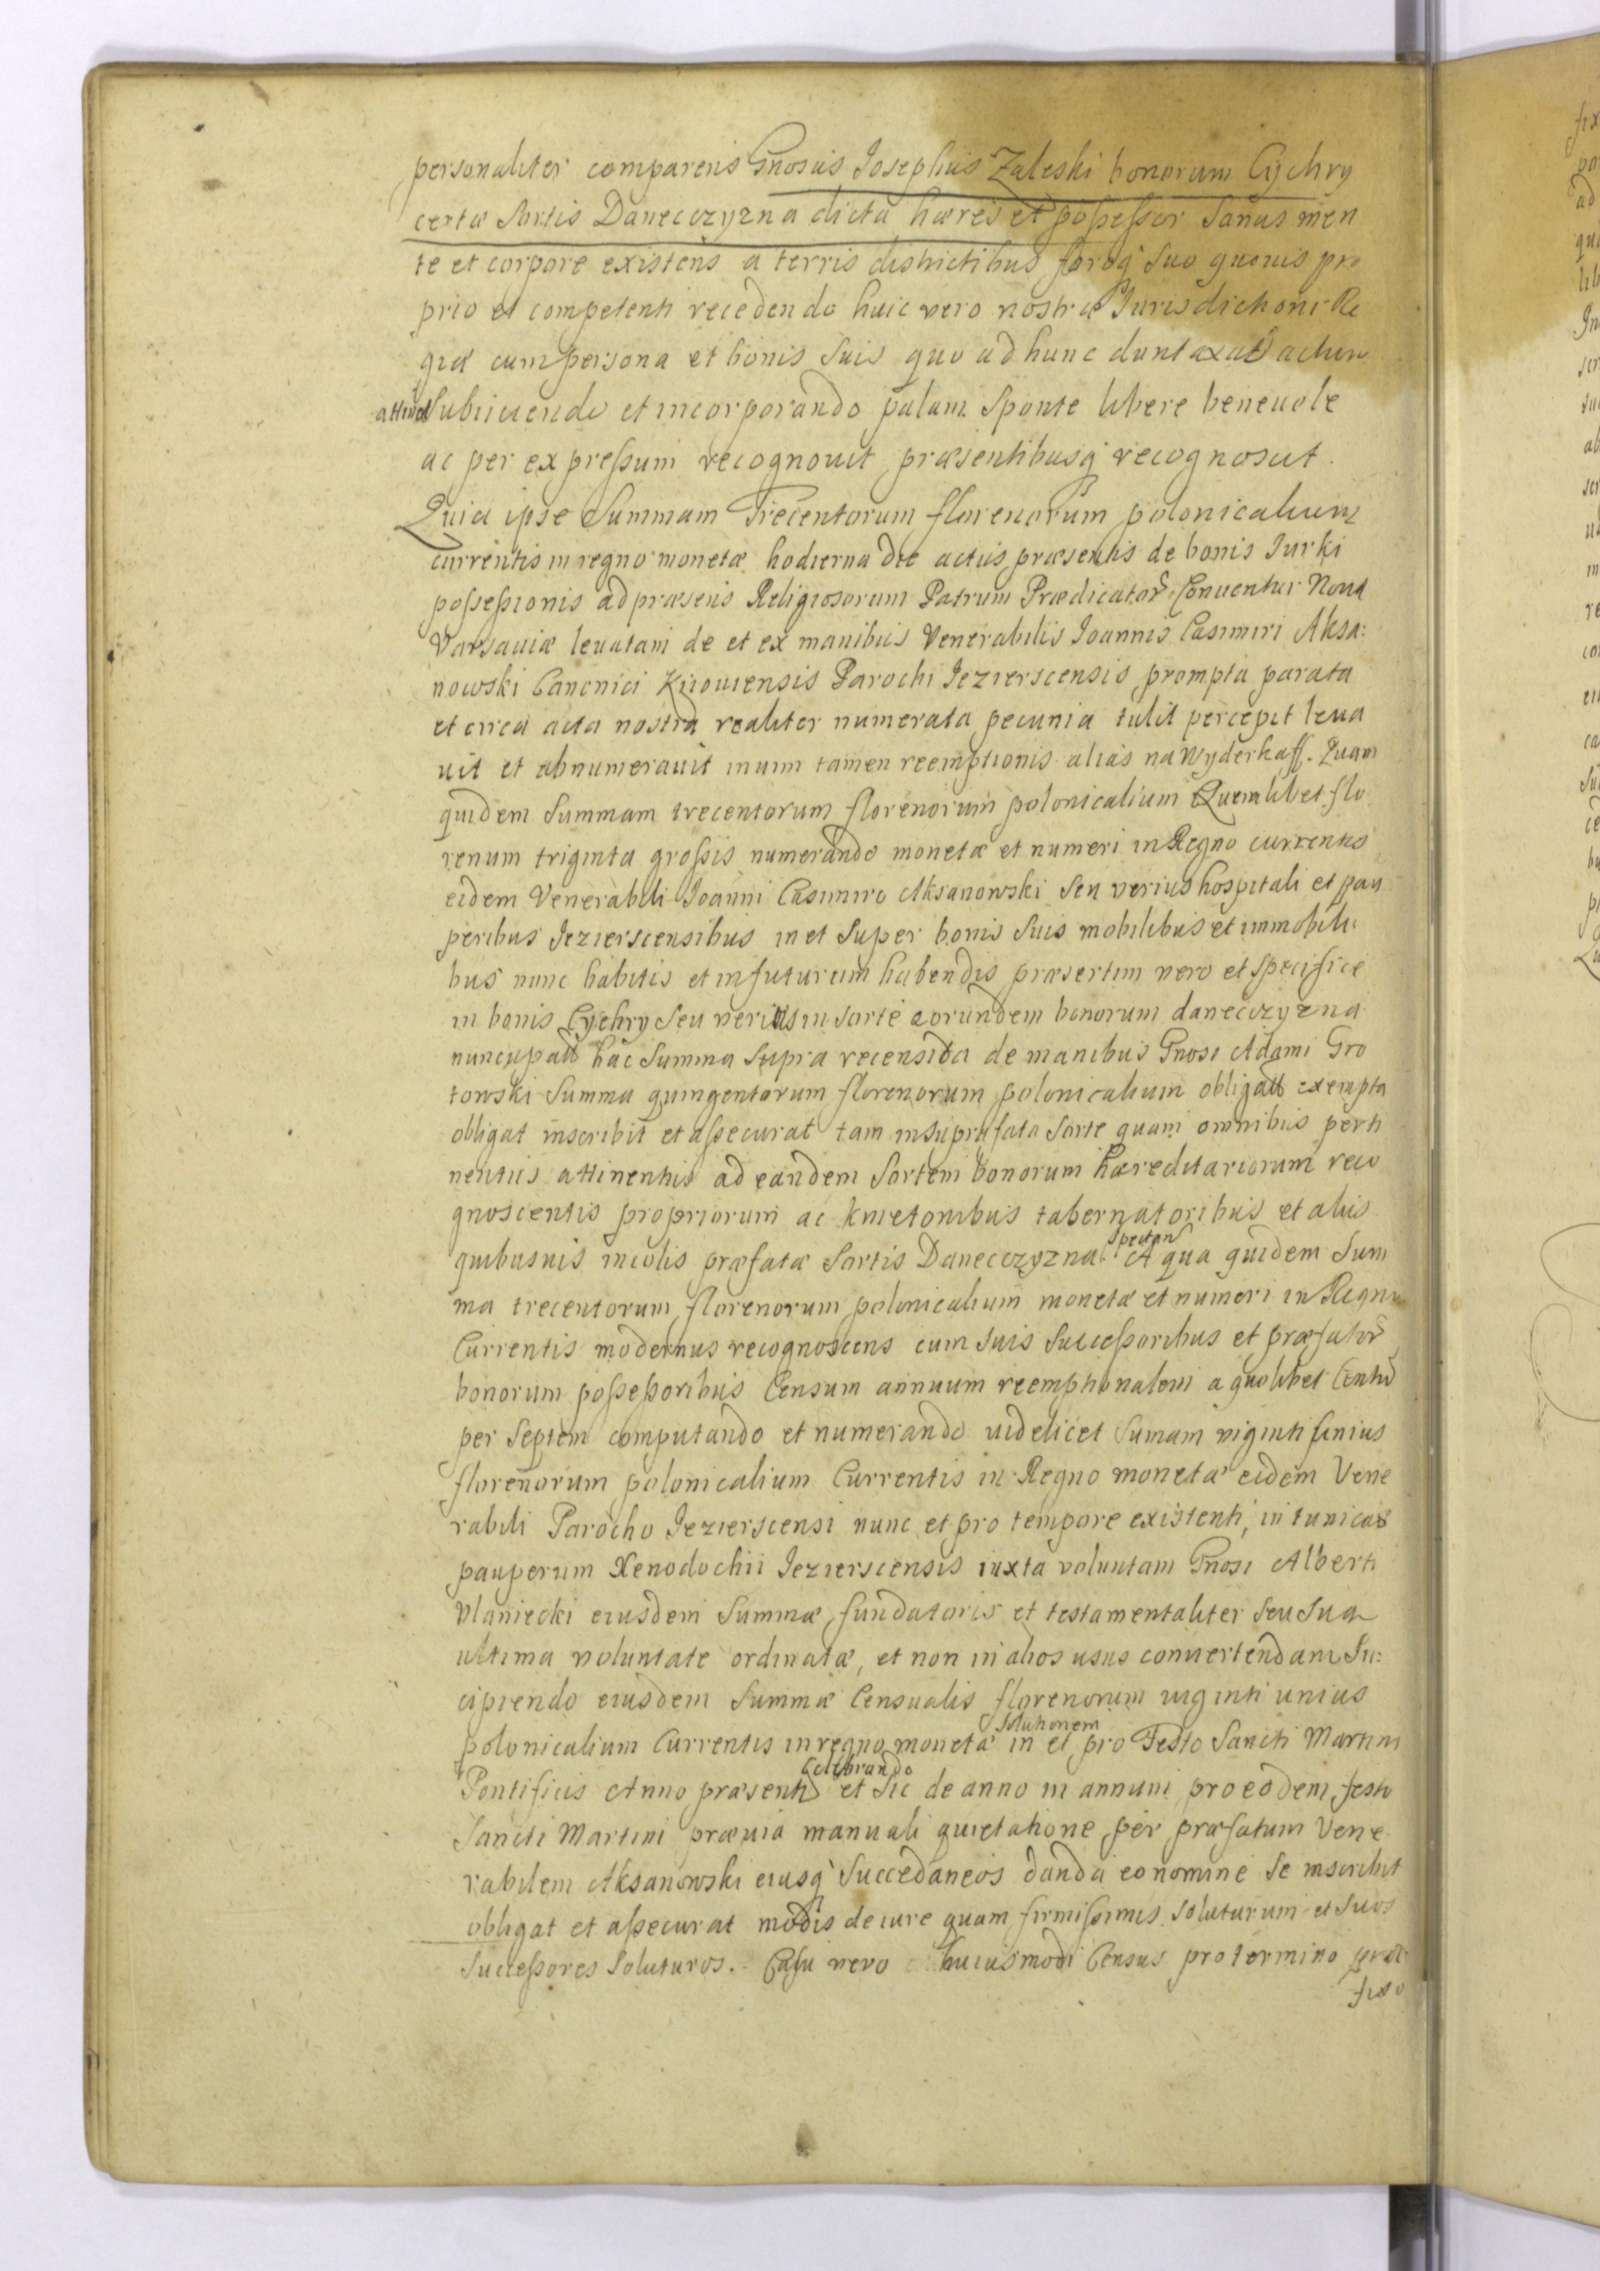 personaliter comparens Gnosus Josephus Zaleski bonorum Cychry
certæ Sortis Danecczyzna dicta hæres et possessor Sanus men
te et corpore existens a terris districtibus foroq suo quovis pro
prio et competenti recedendo huic vero nostræ Jurisdictioni Re
giæ cum persona et bonis suis quo ad hunc duntaxat actum
attinet Subiiciendo et incorporando palam Sponte libere benevole
ac per expressum recognovit præsentibusq recognoscit.
Quia ipse Summam Trecentorum florenorum polonicalium
currentis in regno monetæ hodierna die actus præsentis de bonis Jurki
possessionis ad præsens Religiosorum Patrum Prædicator Conventus Nova
Varsaviæ levatam de et ex manibus Venerabilis Joannis Casimiri Aksa:
nowski Canonici Kiioviensis Parochi Jezierscensis prompta parata
et circa acta nostra realiter numerata pecunia tulit percepit leva
vit et abnumeravit in vim tamen reemptionis alias na Wyderkaff. Quam
quidem Summam trecentorum florenorum polonicalium Quemlibet flo
renum triginta grossis numerando monetæ et numeri in Regno currentis
eidem Venerabili Joanni Casimiro Aksanowski Seu verius hospitali et pau
peribus Jezierscensibus in et Super bonis Suis mobilibus et immobili:
bus nunc habitis et in futurum habendis præsertim vero et Specifice
in bonis Cychry Seu verius in Sorte eorundem bonorum danecczyzna
nuncupatt hac Summa Supra recensita de manibus Gnosi Adami Gro
towski Summa quingentorum florenorum polonicalium obligatt exempta
obligat inscribit et assecurat tam in Suprafata Sorte quam omnibus perti
nentiis attinentiis ad eandem Sortem bonorum hæreditariorum reco
gnoscentis propriorum ac kmetonibus tabernatoribus et aliis
quibusvis incolis præfatæ Sortis Danecczyzna spectan A qua quidem Sum
ma trecentorum florenorum polonicalium monetæ et numeri in Regno
Currentis modernus recognoscens cum suis Successoribus et præfator
bonorum possessoribus Censum annuum reemptionalem a quolibet Centu
per Septem computando et numerando videlicet Sumam viginti unius
florenorum polonicalium Currentis in Regno monetæ eidem Vene
rabili Parocho Jezierscensi nunc et pro tempore existenti, in tunicas
pauperum Xenodochii Jezierscensis iuxta voluntam Gnosi Alberti
Ulaniecki eiusdem Summæ fundatoris et testamentaliter Seu Sua
ultima voluntate ordinatæ, et non in alios usus convertendam Su:
cipiendo eiusdem Summæ Censualis florenorum viginti unius
polonicalium Currentis in regno monetæ solutionem in et pro Festo Sancti Martini
Pontificis Anno præsenti Celebrando et Sic de anno in annum pro eodem festo
Sancti Martini prævia manuali quietatione per præfatum Vene
rabilem Aksanowski eiusq Succedaneos danda eo nomine Se inscribit
obligat et assecurat modis de iure quam firmissimis soluturum et Suos
Successores Soluturos. Casu vero huiusmodi Census pro termino præ
fixo